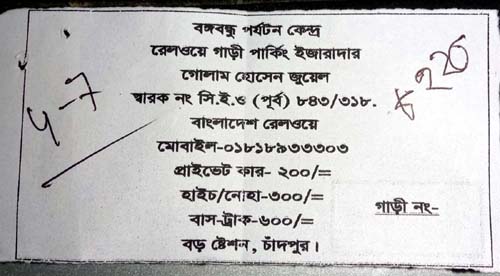 বঙ্গবন্ধু পর্যটন কেন্দ্র
রেলওয়ে গাড়ী পার্কিং ইজারাদার
গোলাম হোসেন জুয়েল
স্মারক নং সি.ই.ও (পূর্ব) ৮৪৩/৩১৮.
বাংলাদেশ রেলওয়ে
মোবাইল-০১৮১৮৯৩৩৩০৩
প্রাইভেট কার- ২০০/=
হাইচ/নোহা-৩০০/=
বাস-ট্রাক-৬০০/=
গাড়ী নং-
বড় ষ্টেশন, চাঁদপুর।